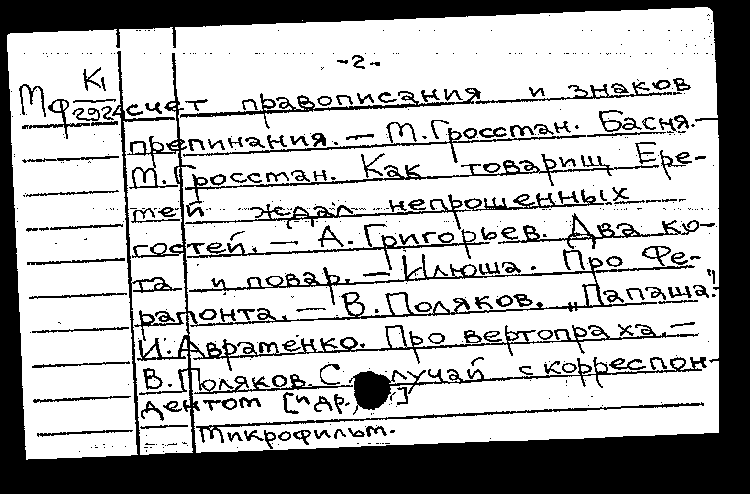 -2-
Мф К1/2924 счет правописания и знаков
препинания. — М. Гроссман. Басня. —
М. Гроссман. Как товарищ Ере-
мей ждал непрошенных
гостей. — А. Григорьев. Два ко-
та и повар. — Илюша. Про Фе-
рапонта. — В. Поляков. „Папаша". 
И. Авраменко. Про вертопраха. —
В. Поляков. Случай с корреспон-
дентом [и др.]
Микрофильм.